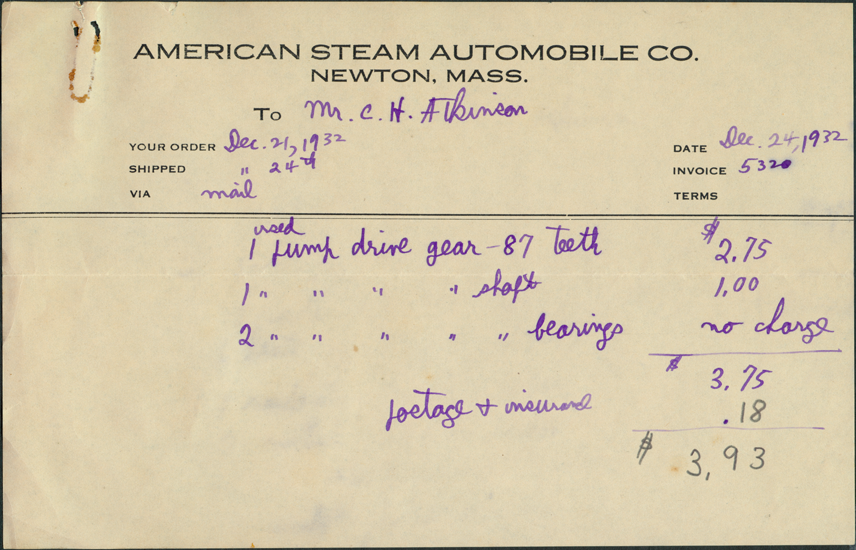 AMERICAN STEAM AUTOMOBILE CO.
NEWTON, MASS.
To Mr. C. H. Atkinson
YOUR ORDER Dec. 21, 1932 DATE Dec. 24, 1932
SHIPPED " 24th INVOICE 5320
VIA mail TERMS
used
1 pump drive gear - 87 teeth $2.75
1 " " " " shaft 1.00
2 " " " " " bearings no charge
$ 3.75
postage + insurance .18
$ 3.93